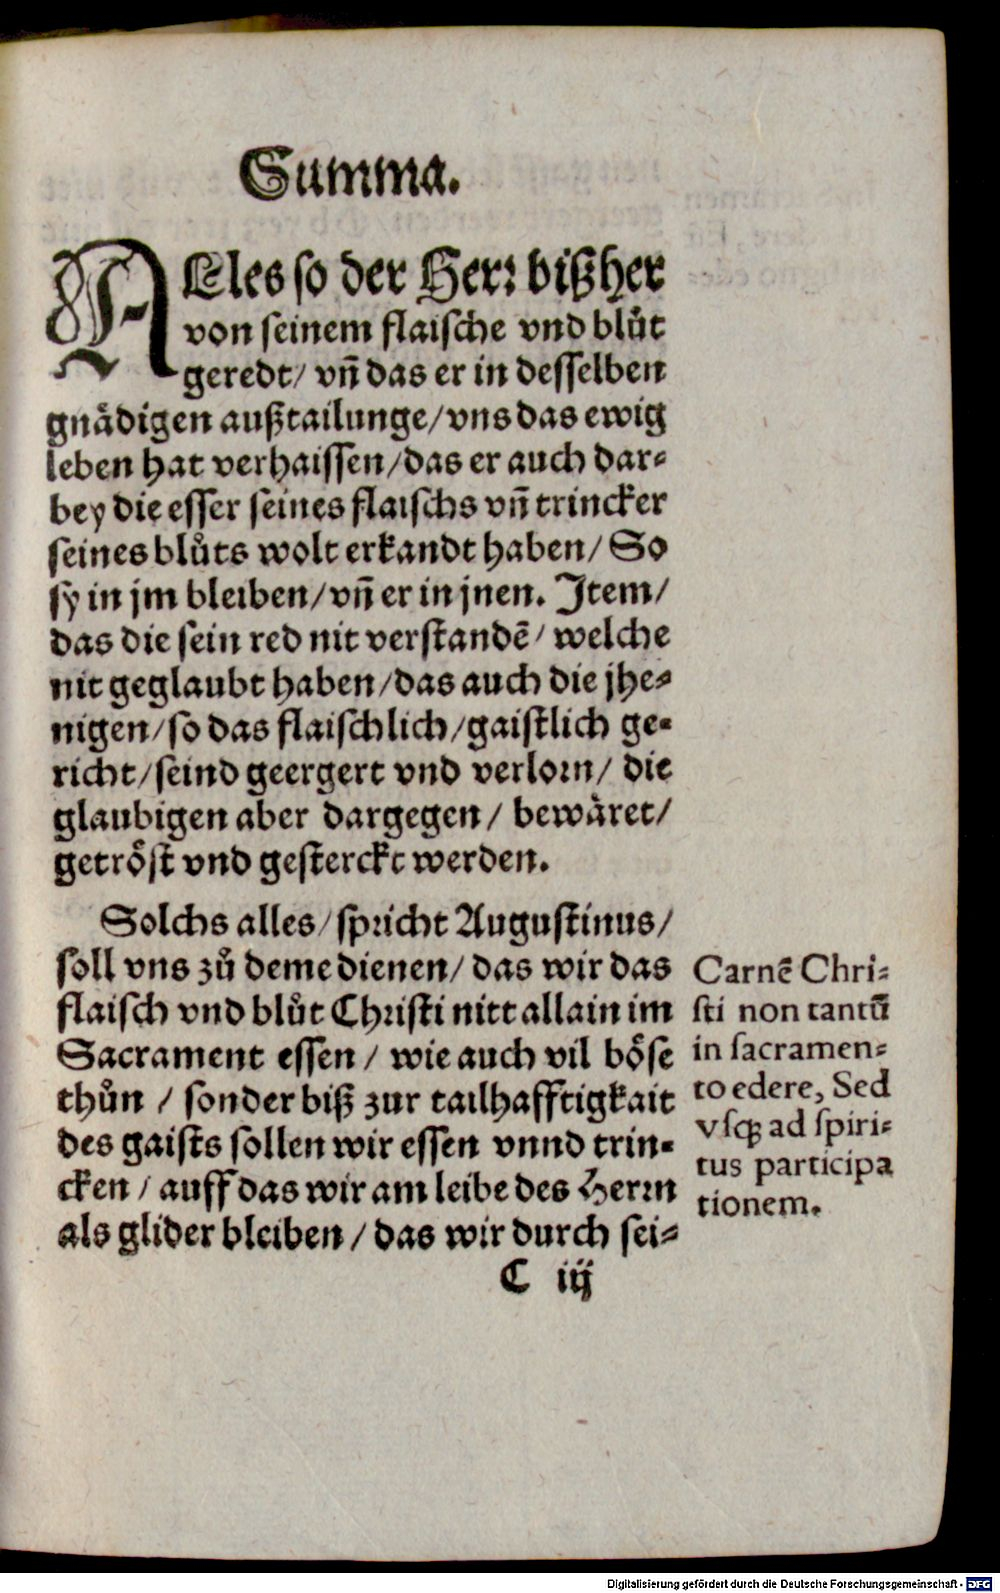 Summa.
ALles so der Herr bißher
von seinem flaische vnd blůt
geredt/ vñ das er in desselben
gnådigen außtailunge/vns das ewig
leben hat verhaissen/das er auch dar-
bey die esser seines flaischs vñ trincker
seines blůts wolt erkandt haben/ So
sy in jm bleiben/vñ er in jnen. Item/
das die sein red nit verstandē/ welche
nit geglaubt haben/das auch die jhe-
nigen/so das flaischlich/gaistlich ge-
richt/seind geergert vnd verlorn/ die
glaubigen aber dargegen/ bewåret/
getrőst vnd gesterckt werden.
Solchs alles/spricht Augustinus/
soll vns zů deme dienen/ das wir das
flaisch vnd blůt Christi nitt allain im
Sacrament essen / wie auch vil bőse
thůn / sonder biß zur tailhafftigkait
des gaists sollen wir essen vnnd trin-
cken / auff das wir am leibe des Herrn
als glider bleiben / das wir durch sei-
C iij
Carnē Chri-
sti non tantū
in sacramen-
to edere, Sed
vsq; ad spiri-
tus participa
tionem.
Digitalisierung gefördert durch die Deutsche Forschungsgemeinschaft - DFG